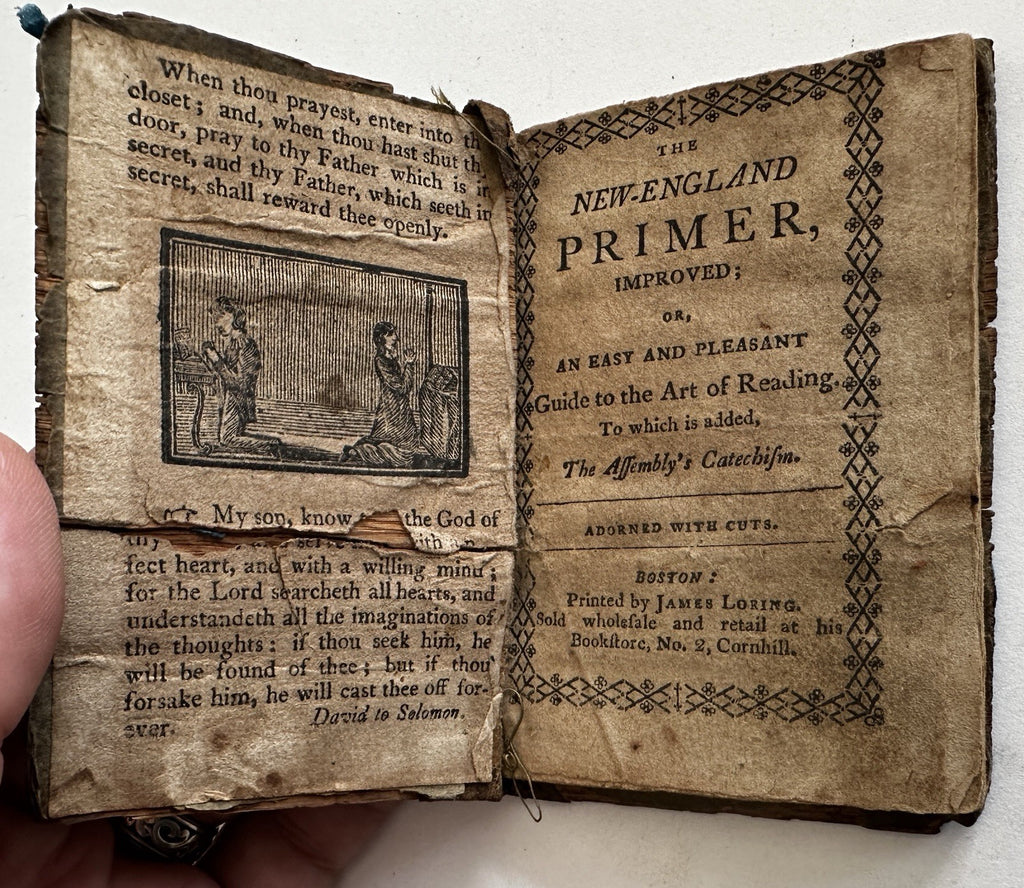 When thou prayest, enter into th
closet; and, when thou hast shut th
door, pray to thy Father which is in
secret, and thy Father, which seeth in
secret, shall reward thee openly.
☞ My son, know the God of
and serve ith an
fect heart, and with a willing mind;
for the Lord searcheth all hearts, and
understandeth all the imaginations of
the thoughts: if thou seek him, he
will be found of thee; but if thou
forsake him, he will cast thee off for-
ever.
David to Solomon.
THE
NEW-ENGLAND
PRIMER,
IMPROVED;
OR,
AN EASY AND PLEASANT
Guide to the Art of Reading.
To which is added,
The Aſſembly's Catechiſm.
ADORNED WITH CUTS.
BOSTON:
Printed by JAMES LORING.
Sold wholeſale and retail at his
Bookſtore, No. 2, Cornhill.